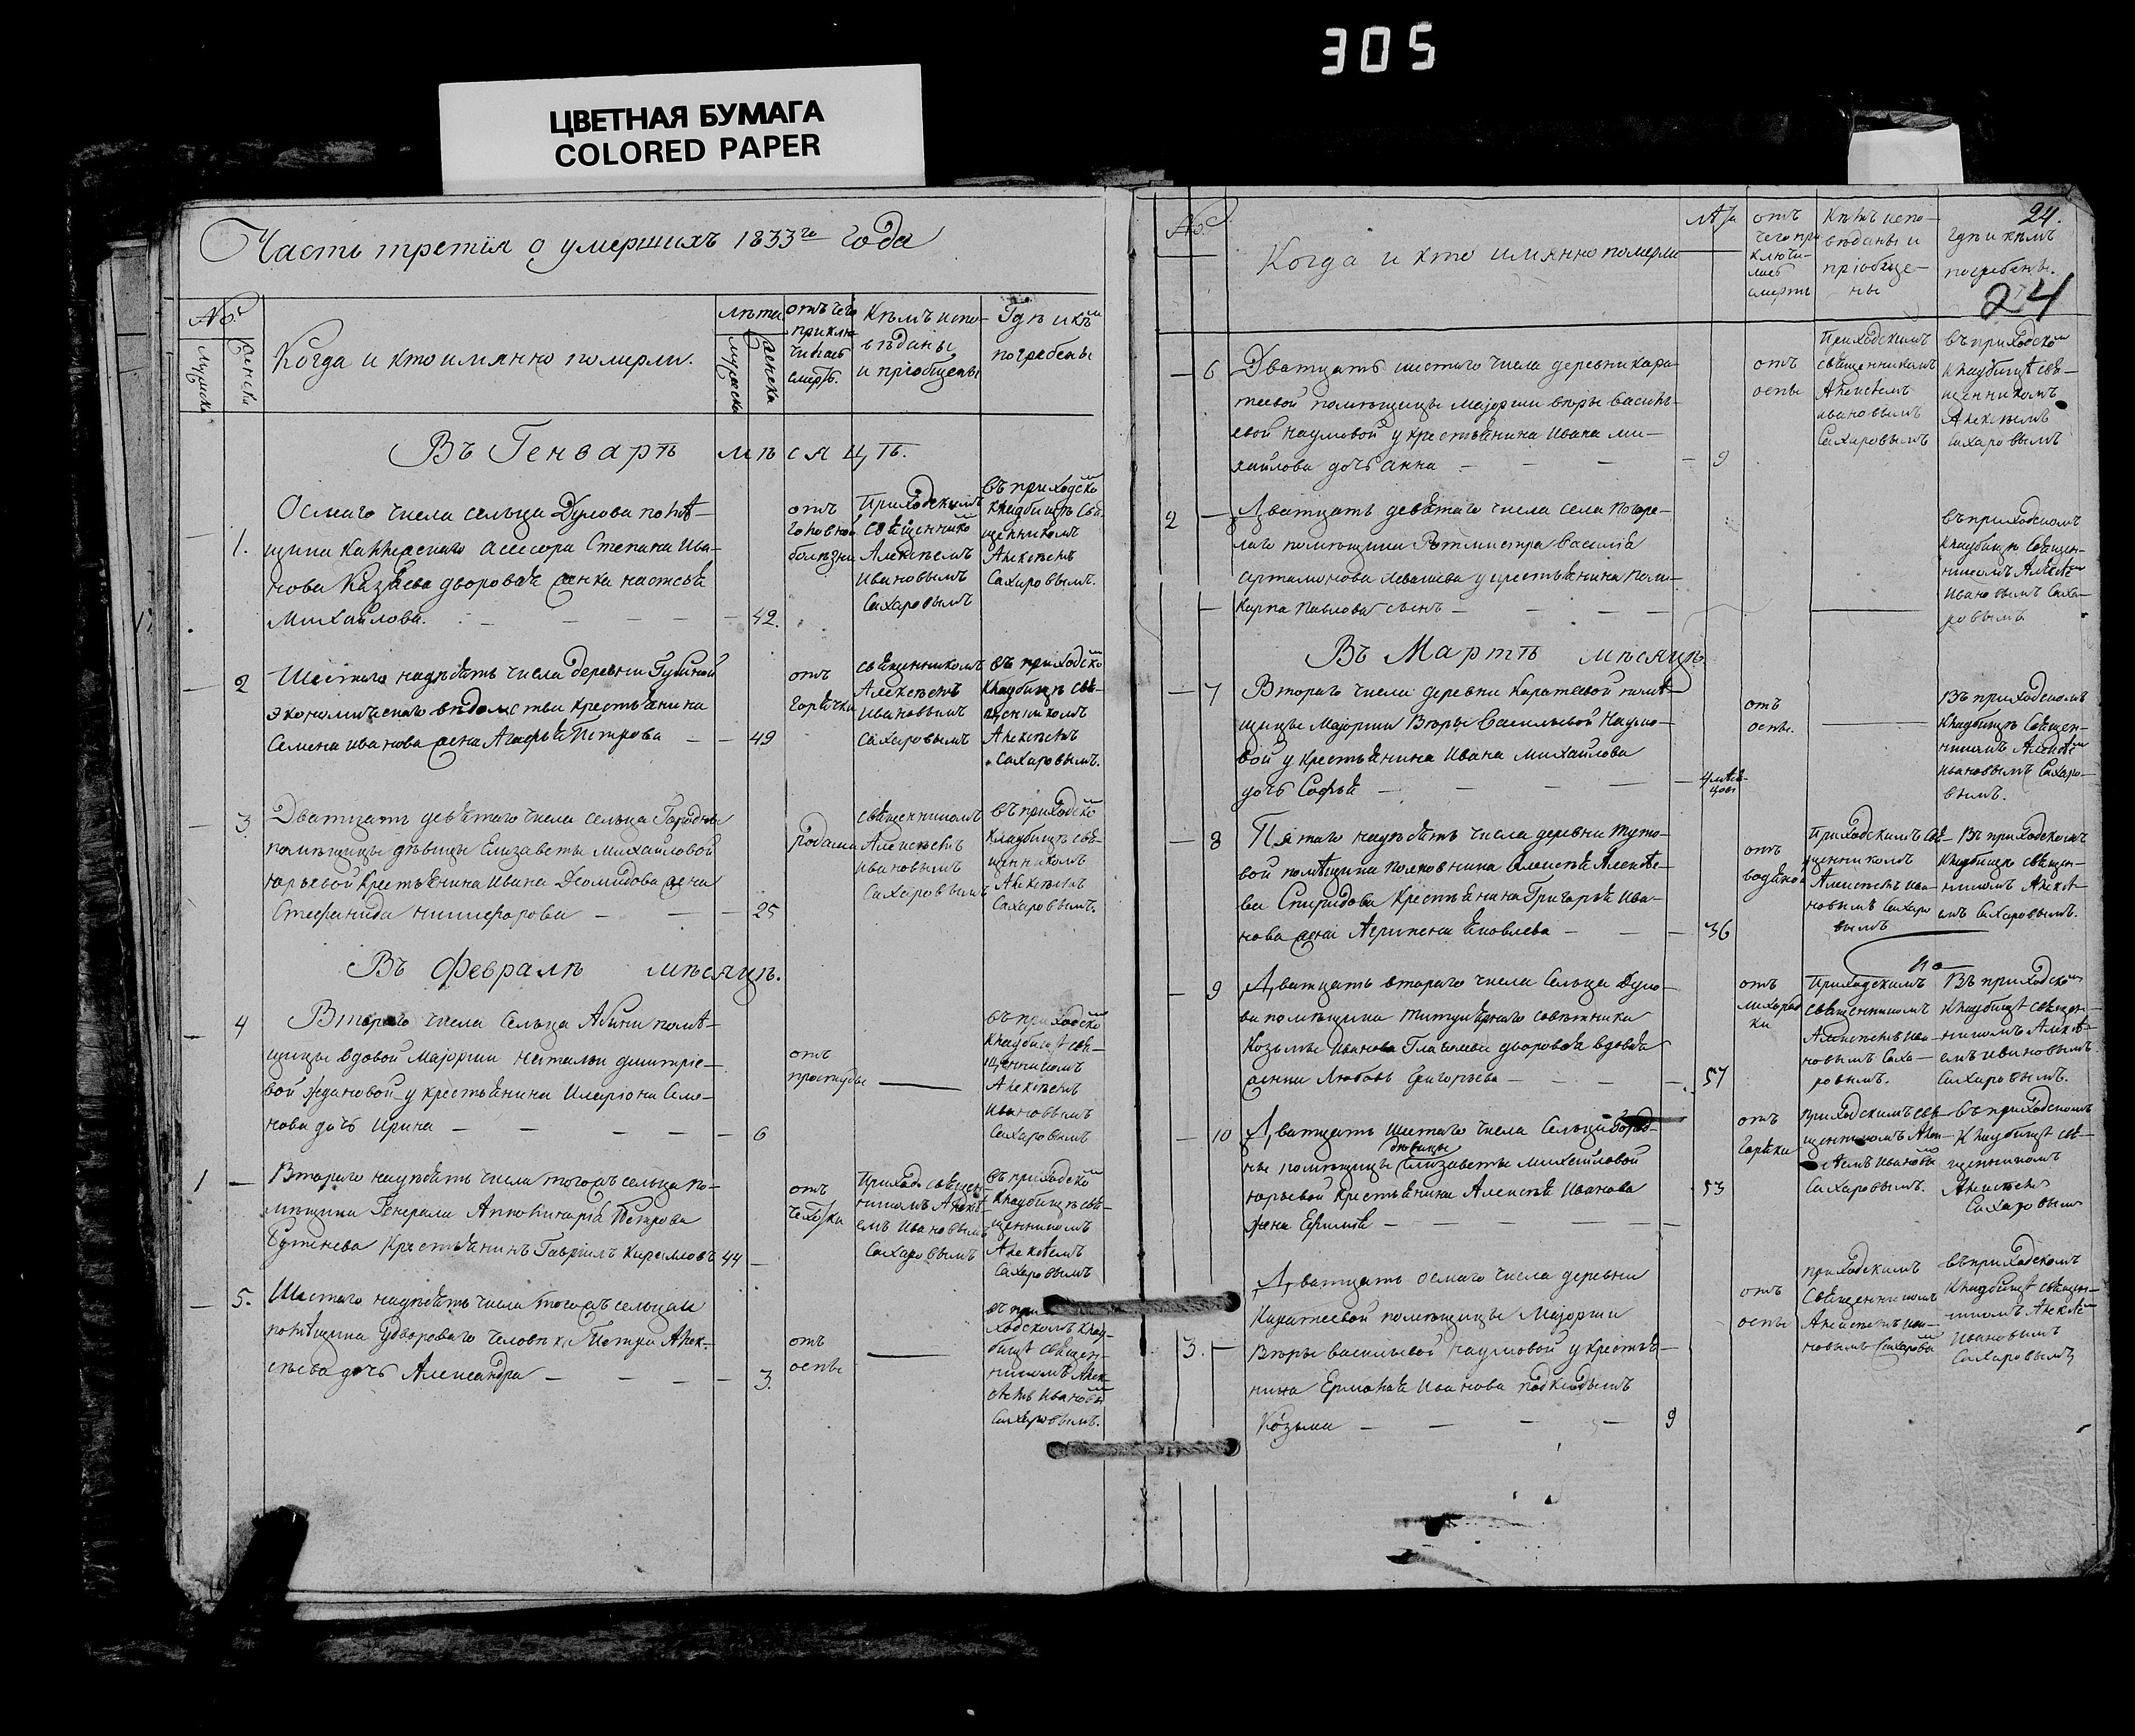 305
ЦВЕТНАЯ БУМАГА
COLORED PAPER
Часть третія о умершихъ 1833го года
№.
Мужска
женска
Когда и кто имянно померли.
лѣта
мужска
женска
отъ чего
приклю
чилась
смерть.
Кѣмъ испо-
вѣданы
и пріобщены
Гдѣ и кѣм
погребены
Въ Генварѣ мѣсяцѣ.
1.
Осмаго числа сельца Дулова помѣ-
щика Коллежскаго Асесора Степана Ива-
нова дворовая женка настасья
Михайлова.
42.
отъ
головной
болѣзни
Приходскимъ
священнико
Алексѣемъ
Ивановымъ
Сахаровымъ
въ приходско
кладбищѣ свя-
щенникомъ
Алексѣемъ
Сахаровымъ.
2
Шестаго надесять числа деревни Губиной
экономическаго вѣдомства крестьянина
Семена иванова жена Агафья Петрова
49
отъ
горячки
священникомъ
Алексѣемъ
Ивановымъ
Сахаровымъ
въ приходско
кладбищѣ свя-
щенникомъ
Алексѣемъ
Сахаровымъ.
3.
Дватцать девятаго числа сельца
помѣщицы дѣвицы Елизаветы Михайловой
юрьевой крестьянина Ивана Демидова жена
Стефанида никифорова
25
родами
священникомъ
Алексѣемъ
ивановымъ
Сахаровымъ
въ приходско
кладбищѣ свя-
щенникомъ
Алексѣемъ
Сахаровымъ.
Въ Февралѣ мѣсяцѣ.
4
Втораго числа сельца помѣ-
щицы вдовой Маjорши Натальи димитріе-
вой Ждановой у крестьянина Иларіона Семе-
нова дочь Ирина
6
отъ
простуды
въ приходско
кладбищѣ свя-
щенникомъ
Алексѣемъ
Ивановымъ
Сахаровымъ
1
Втораго надесять числа тогожъ сельца по-
мѣщика Генерала Апполинарія Петрова
Бутенева Крестьянинъ Гавріилъ Кириловъ
44
отъ
чехотки
Приходс священ-
никомъ Алексѣ-
емъ Ивановымъ
Сахаровымъ
въ приходско
кладбищѣ свя-
щенникомъ
Алексѣемъ
Сахаровымъ
5.
Шестаго надесять числа тогожъ сельца и
помѣщика у двороваго человѣка Петра Алек-
сѣева дочь Александра
3.
отъ
оспы
въ при
ходскомъ клад-
бищѣ священ-
никомъ Алек-
сѣемъ Ивановы
Сахаровымъ.
№.
Когда и кто имянно померли
лѣта
отъ
чего при
ключи-
лась
смерть
Кѣмъ испо-
вѣданы и
пріобще-
ны
24.
Гдѣ и кѣмъ
погребены.
24
6
Дватцать шестаго числа деревни Кара-
теевой помѣщицы Маjорши Вѣры Василь-
евой Наумовой у крестьянина Ивана Ми-
хайлова дочь Анна
9
отъ
оспы
Приходскимъ
священникомъ
Алексѣемъ
ивановымъ
Сахаровымъ
въ приходско
кладбищѣ свя-
щенникомъ
Алексѣемъ
Сахаровымъ
2
Дватцать девятаго числа села Погоре-
лаго помѣщика Ротмистра Василія
Артамонова Левашева у крестьянина Поли-
карпа Павлова сынъ
въ приходскомъ
кладбищѣ священ-
никомъ Алексѣем
Ивановымъ Саха-
ровымъ
Въ Мартѣ мѣсяцѣ.
7
Втораго числа деревни Каратеевой помѣ-
щицы Маjорши Вѣры Васильевой Наумо-
вой у крестьянина Ивана Михайлова
дочь Софья
4 мѣся-
цовъ
отъ
оспы.
Въ приходскомъ
кладбищѣ священ-
никомъ Алексѣем
Ивановымъ Сахаро-
вымъ.
8
Пятаго надесять числа деревни Туто-
вой помѣщика полковника Алексѣя Алексѣе-
ва Спиридова крестьянина Григорья Ива-
нова жена Агрипена Яковлева
36
отъ
водяной
Приходскимъ свя
щенникомъ
Алексѣемъ Ива-
новымъ Сахаро
вымъ
Въ приходскомъ
кладбищѣ священ-
никомъ Алексѣ-
емъ Сахаровымъ.
9
Дватцать втораго числа Сельца Дуло-
ва помѣщика титулярнаго совѣтника
Козьмы Иванова дворовая вдовая
женка Любовь Григорьева
57
отъ
лихорад
ки
Приходскимъ
священникомъ
Алексѣемъ Ива-
новымъ Саха-
ровымъ.
Въ приходском
кладбищѣ священ-
никомъ Алексѣ-
емъ ивановымъ
Сахаровымъ.
10
Дватцать Шестаго числа Сельца
дѣвицы
помѣщицы Елизаветы Михайловой
юрьевой крестьянина Алексѣя Иванова
жена
53
отъ
горячки
Приходскимъ свя-
щенникомъ Алек-
сѣемъ Ивановы
Сахаровымъ.
въ приходскомъ
кладбищѣ свя-
щенникомъ
Алексѣем
Сахаровым
3.
Дватцать осмаго числа деревни
Каратеевой помѣщицы Маjорши
Вѣры Васильевой Наумовой у крестья-
нина Ермолая Иванова подкидышъ
Козьма
9
отъ
оспы
приходскимъ
Священникомъ
Алексѣемъ Ива-
новымъ Сахаров
въ приходскомъ
кладбищѣ священ-
никомъ Алексѣем
Ивановымъ
Сахаровымъ